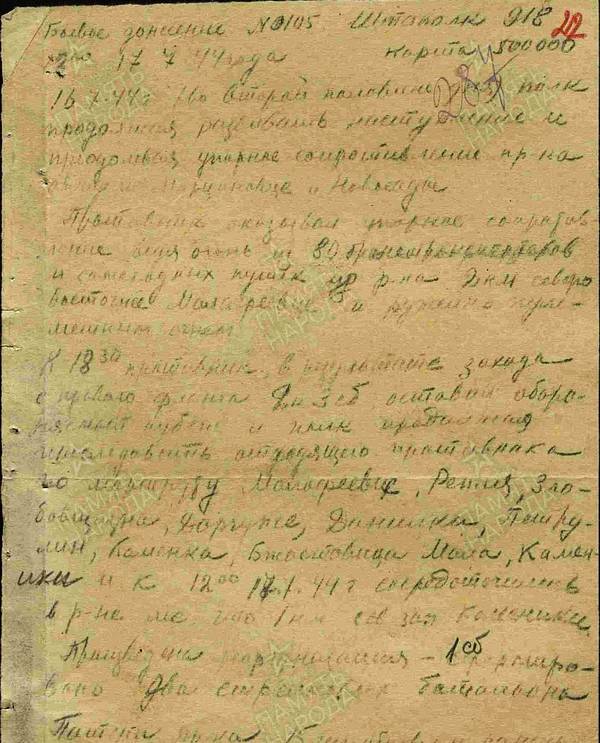 Боевое донесение №0105 Штаполк 918 22
12⁰⁰ 17.7.44 года карта 500000
287
16.7.44 г во второй половине дня полк
продолжая развивать наступление и
преодолевая упорное сопротивление пр-ка
и Новосады
Противник оказывал упорное сопротив-
ление ведя огонь из 80 бронетранспортеров
и самоходных пушек из р-на 2 км северо
восточнее Малафеевце и ружейно пуле-
метным огнем
К 18³⁰ противник, в результате захода
с правого фланга 2 и 3 сб оставил оборо-
няемый рубеж и полк продолжая
преследовать отходящего противника
по маршруту Малафеевце, Репля, Зло-
бовщизна, Доргуже, Данилки, Петру-
лин, Каменка, Бжостовица Мала, Камен-
ики и к 12⁰⁰ 17.7.44 г сосредоточился
в р-не лес что 1 км сев зап Каменики.
Произведена реорганизация – 1 сб расформиро-
вано два стрелковых батальона
Потери пр-ка